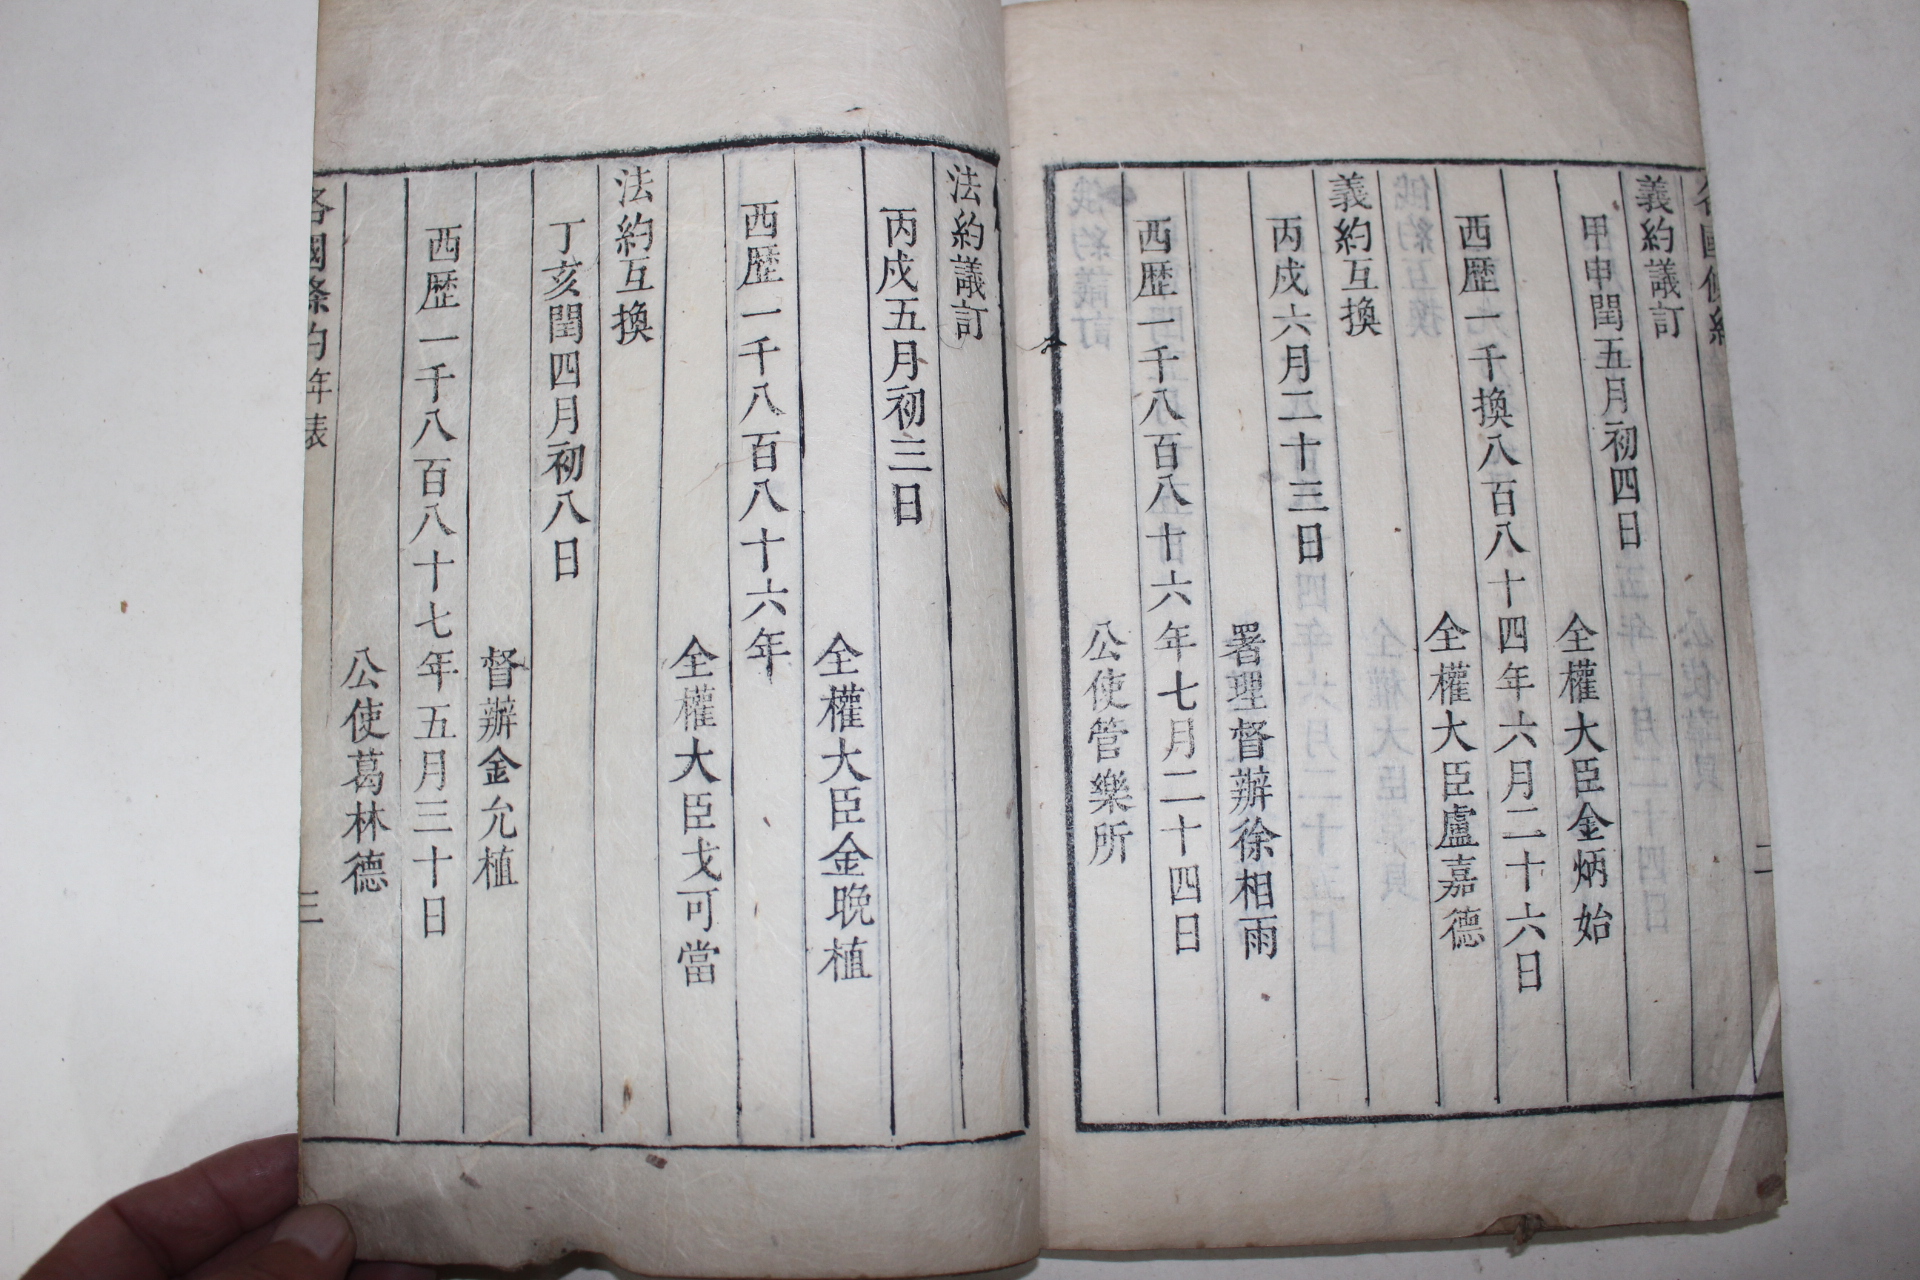 義約議訂
甲申閏五月初四日
全權大臣金炳始
西歷一千換八百八十四年六月二十六日
全權大臣盧嘉德
義約互換
丙戍六月二十三日
署理督辦徐相雨
西歷一千八百八十六年七月二十四日
公使管樂所
法約議訂
丙戍五月初三日
全權大臣金晚植
西歷一千八百八十六年
全權大臣戈可當
法約互換
丁亥閏四月初八日
督辦金允植
西歷一千八百八十七年五月三十日
公使葛林德
各國條約年表
三